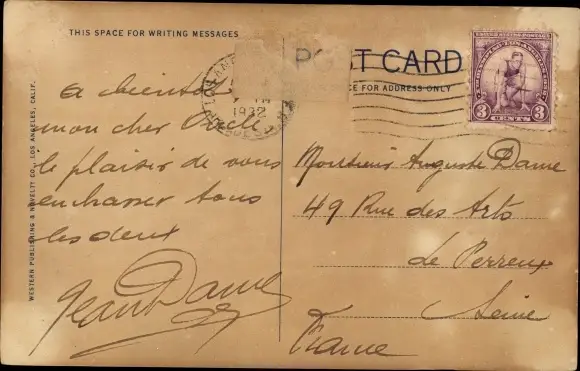 THIS SPACE FOR WRITING MESSAGES
POST CARD
CE FOR ADDRESS ONLY
WESTERN PUBLISHING & NOVELTY CO., LOS ANGELES, CALIF.
1932
3 3
CENTS
A bientôt
mon cher Oncle
le plaisir de vous
embrasser tous
les deux
Jean Dame
Monsieur Auguste Dame
49 Rue des Arts
Le Perreux
Seine
France